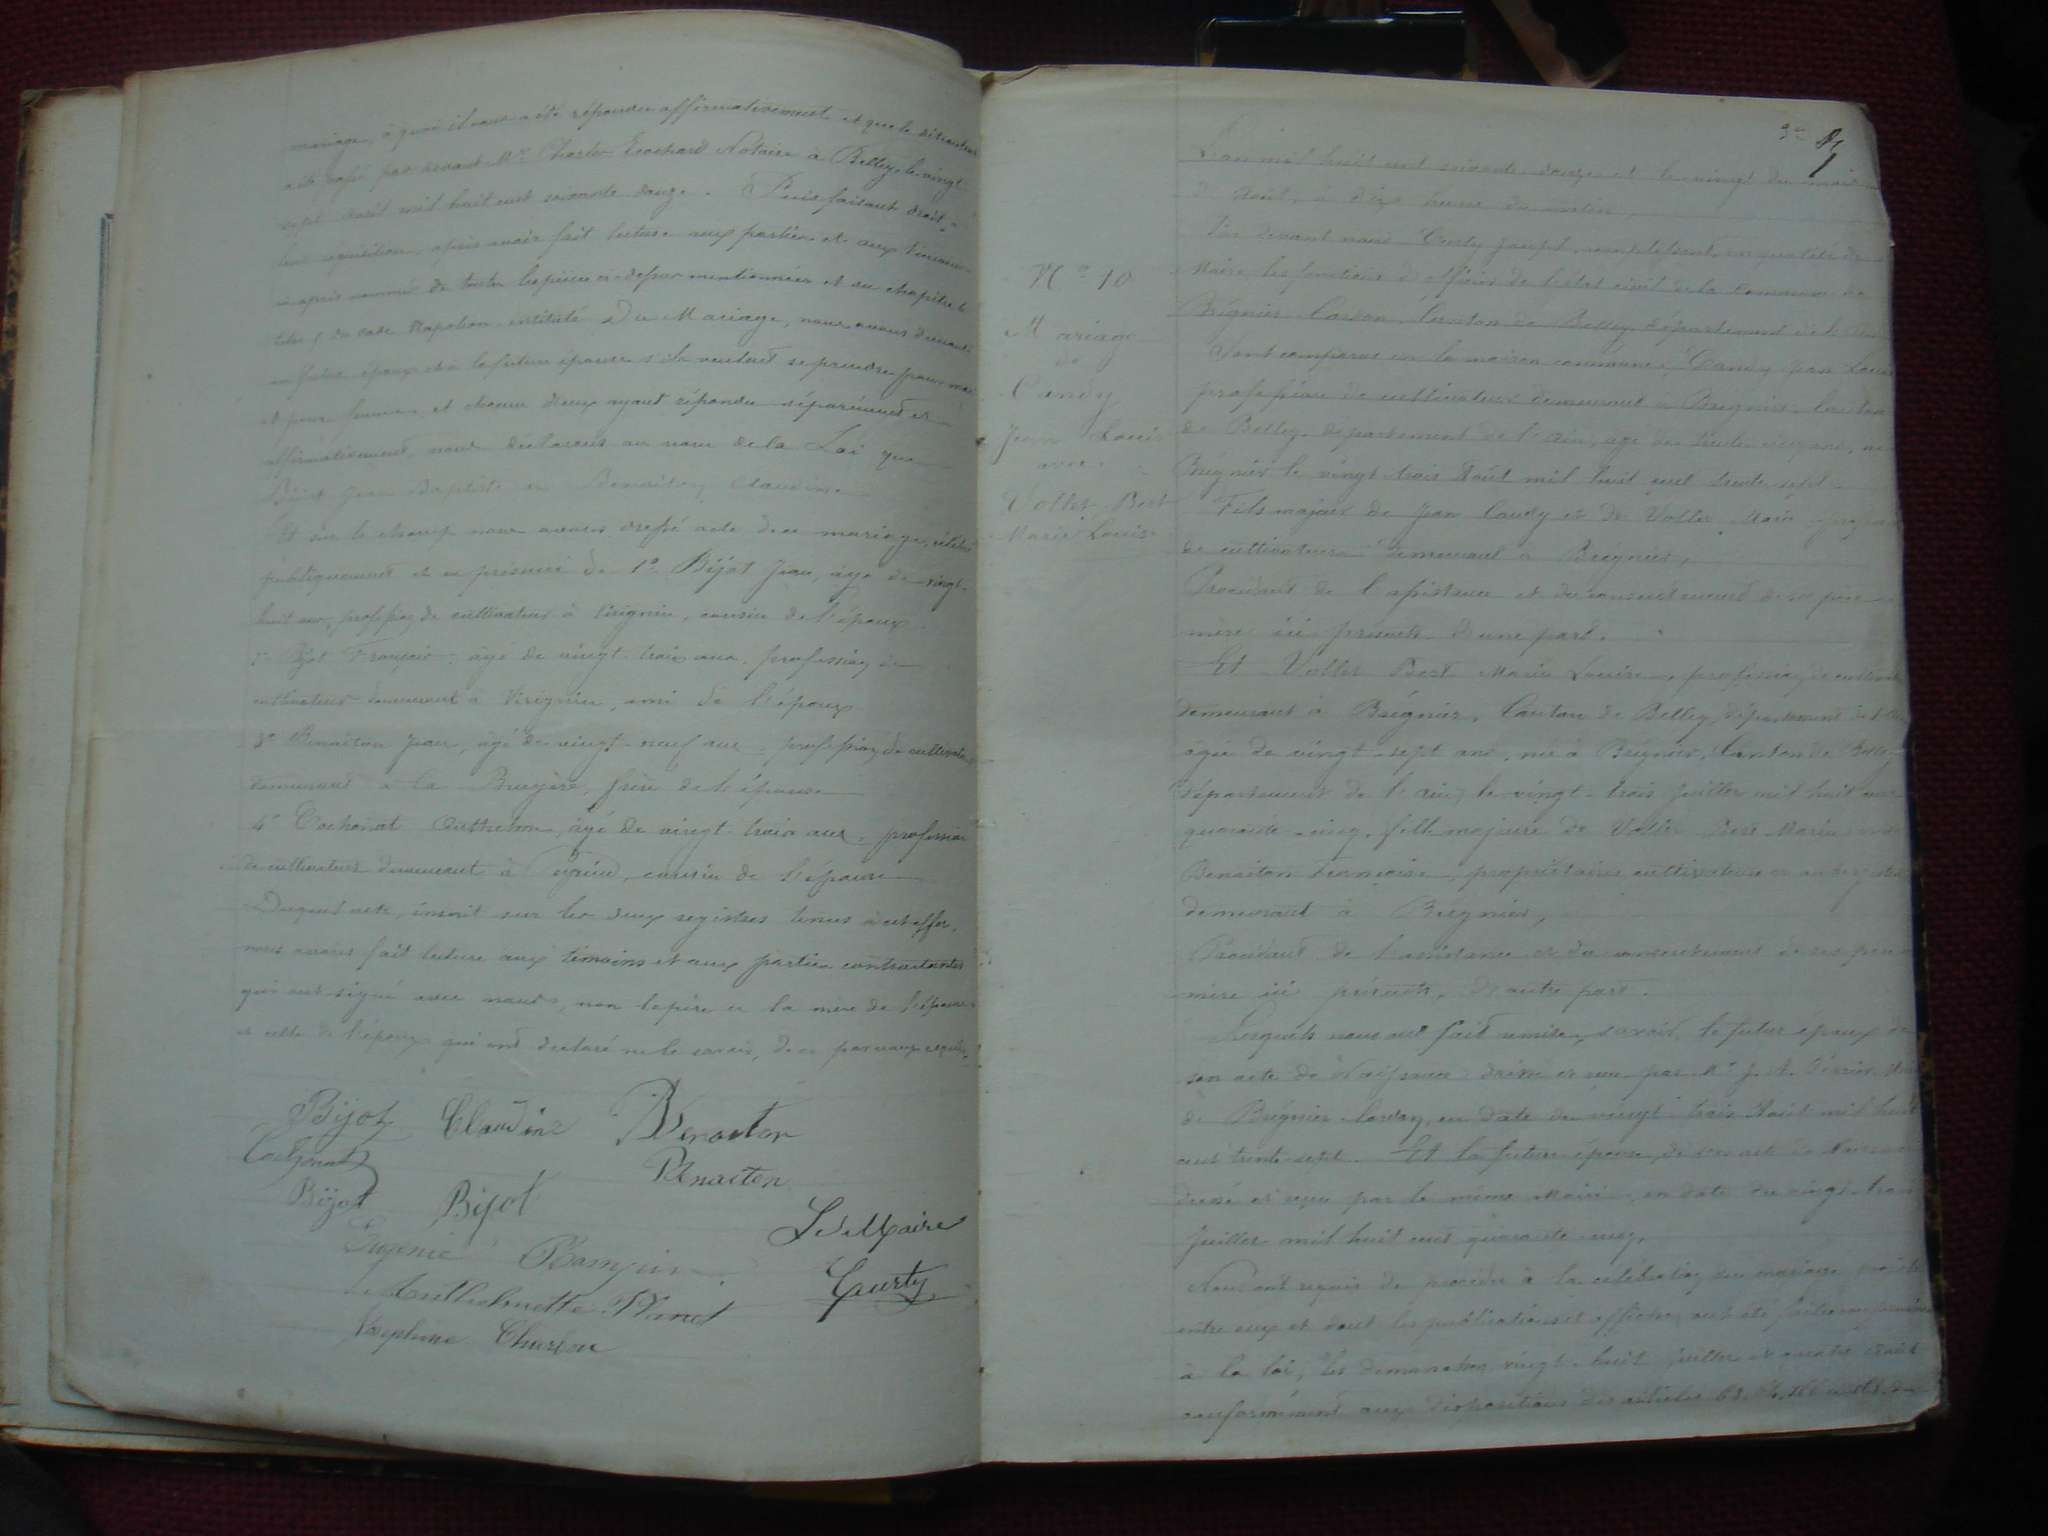 mariage, à quoi il nous a été répondu affirmativement et que le dit contrat
a été passé par devant Me Charles Notaire à Belley, le vingt
sept Août mil huit cent soixante douze. Puis faisant droit à
leur réquisition, après avoir fait lecture aux parties et aux témoins
ci-après nommés de toutes les pièces ci-dessus mentionnées et du chapitre 6
titre 5 du code Napoléon intitulé Du Mariage, nous avons demandé
au futur époux et à la future épouse s'ils veulent se prendre pour mari
et pour femme, et chacun d'eux ayant répondu séparément et
affirmativement, nous déclarons au nom de la Loi que
Bijot Jean Baptiste et Benaiton Claudine
Et sur le champ nous avons dressé acte de ce mariage, célébré
publiquement et en présence de 1o Bijot Jean, âgé de vingt
huit ans, profession de cultivateur à Virignin, cousin de l'époux
2o Bijot François, âgé de vingt trois ans, profession de
cultivateur demeurant à Virignin, ami de l'époux
3o Benaiton Jean, âgé de vingt-neuf ans, profession de cultivateur
demeurant à la Bruyère, frère de l'épouse
4o Cochonat Anthelme, âgé de vingt-trois ans, profession
de cultivateur demeurant à Peyrieu, cousin de l'épouse
Duquel acte, inscrit sur les deux registres tenus à cet effet,
nous avons fait lecture aux témoins et aux parties contractantes
qui ont signé avec nous, non le père et la mère de l'épouse
et celle de l'époux qui ont déclaré ne le savoir, de ce par nous requis.
Bijot Claudine Benaiton
Cochonat Benaiton
Bijot Bijot
Le Maire
Eugénie
Courty
Anthelmette
Joséphine
L'an mil huit cent soixante-douze et le vingt du mois
d'Août, à dix heures du matin,
Par devant nous Courty Joseph, remplissant, en qualité de
Maire les fonctions d'officier de l'état civil de la commune de
Brégnier-Cordon, Canton de Belley, département de l'Ain
Sont comparus en la maison commune, Candy Jean Louis
profession de cultivateur demeurant à Brégnier, Canton
de Belley, département de l'Ain, âgé de trente cinq ans, né
Brégnier le vingt-trois Août mil huit cent trente sept
Fils majeur de Jean Candy et de Vollet Marie
de cultivateurs demeurant à Brégnier,
Procédant de l'assistance et du consentement de ses père
mère ici présents, d'une part.
Et Vollet Bert Marie Louise, profession de
demeurant à Brégnier, Canton de Belley, département de l'Ain
âgée de vingt-sept ans, née à Brégnier, Canton de Belley
département de l'Ain, le vingt-trois Juillet mil huit cent
quarante-cinq, fille majeure de Vollet Bert Marin
Benaiton Françoise, propriétaires cultivateurs
demeurant à Brégnier,
Procédant de l'assistance et du consentement de ses père
mère ici présents, d'autre part.
Lesquels nous ont fait remise, savoir, le futur époux de
son acte de Naissance dressé et reçu par Mr J. A. Maire
de Brégnier-Cordon, en date du vingt-trois Août mil huit
cent trente-sept. Et la future épouse, de son acte de Naissance
dressé et reçu par le même Maire, en date du vingt-trois
Juillet mil huit cent quarante-cinq.
Nous ont requis de procéder à la célébration du mariage projeté
entre eux et dont les publications et affiches ont été faites
à la loi, les dimanches vingt-huit Juillet et quatre Août
conformément aux dispositions des articles 63, 64,
No 10
Mariage
de
Candy
Jean Louis
avec
Vollet Bert
Marie Louise